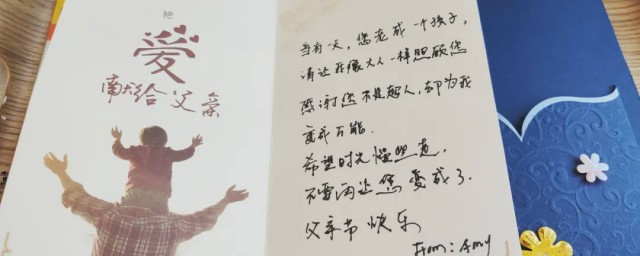 把
愛
献给父亲
当有一天，您老成一个孩子，
请让我像大人一样照顾您
感谢您不是超人，却为我
变成万能.
希望时光慢些走，
不要再让您变老了.
父亲节快乐
From: Amy